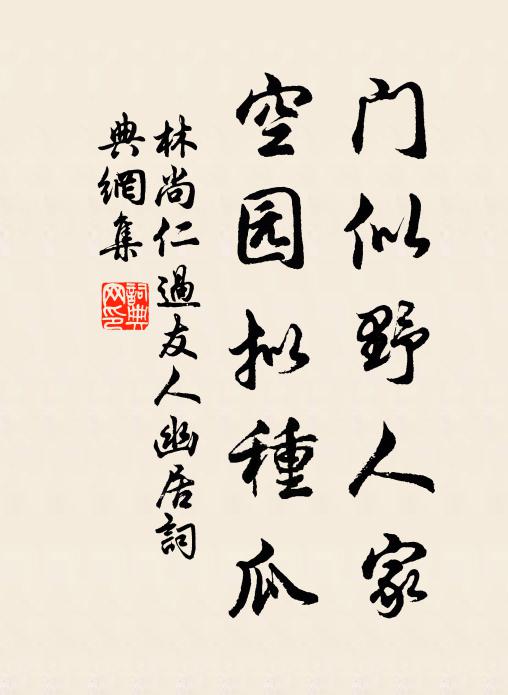 门似野人家
空园拟種瓜
林尚仁過友人幽居詞
典網集
詞典
网印